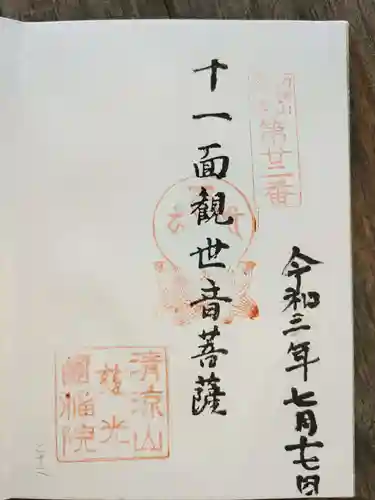 第廿二番
十一面観世音菩薩
令和三年七月十七日
清涼山
光
福院